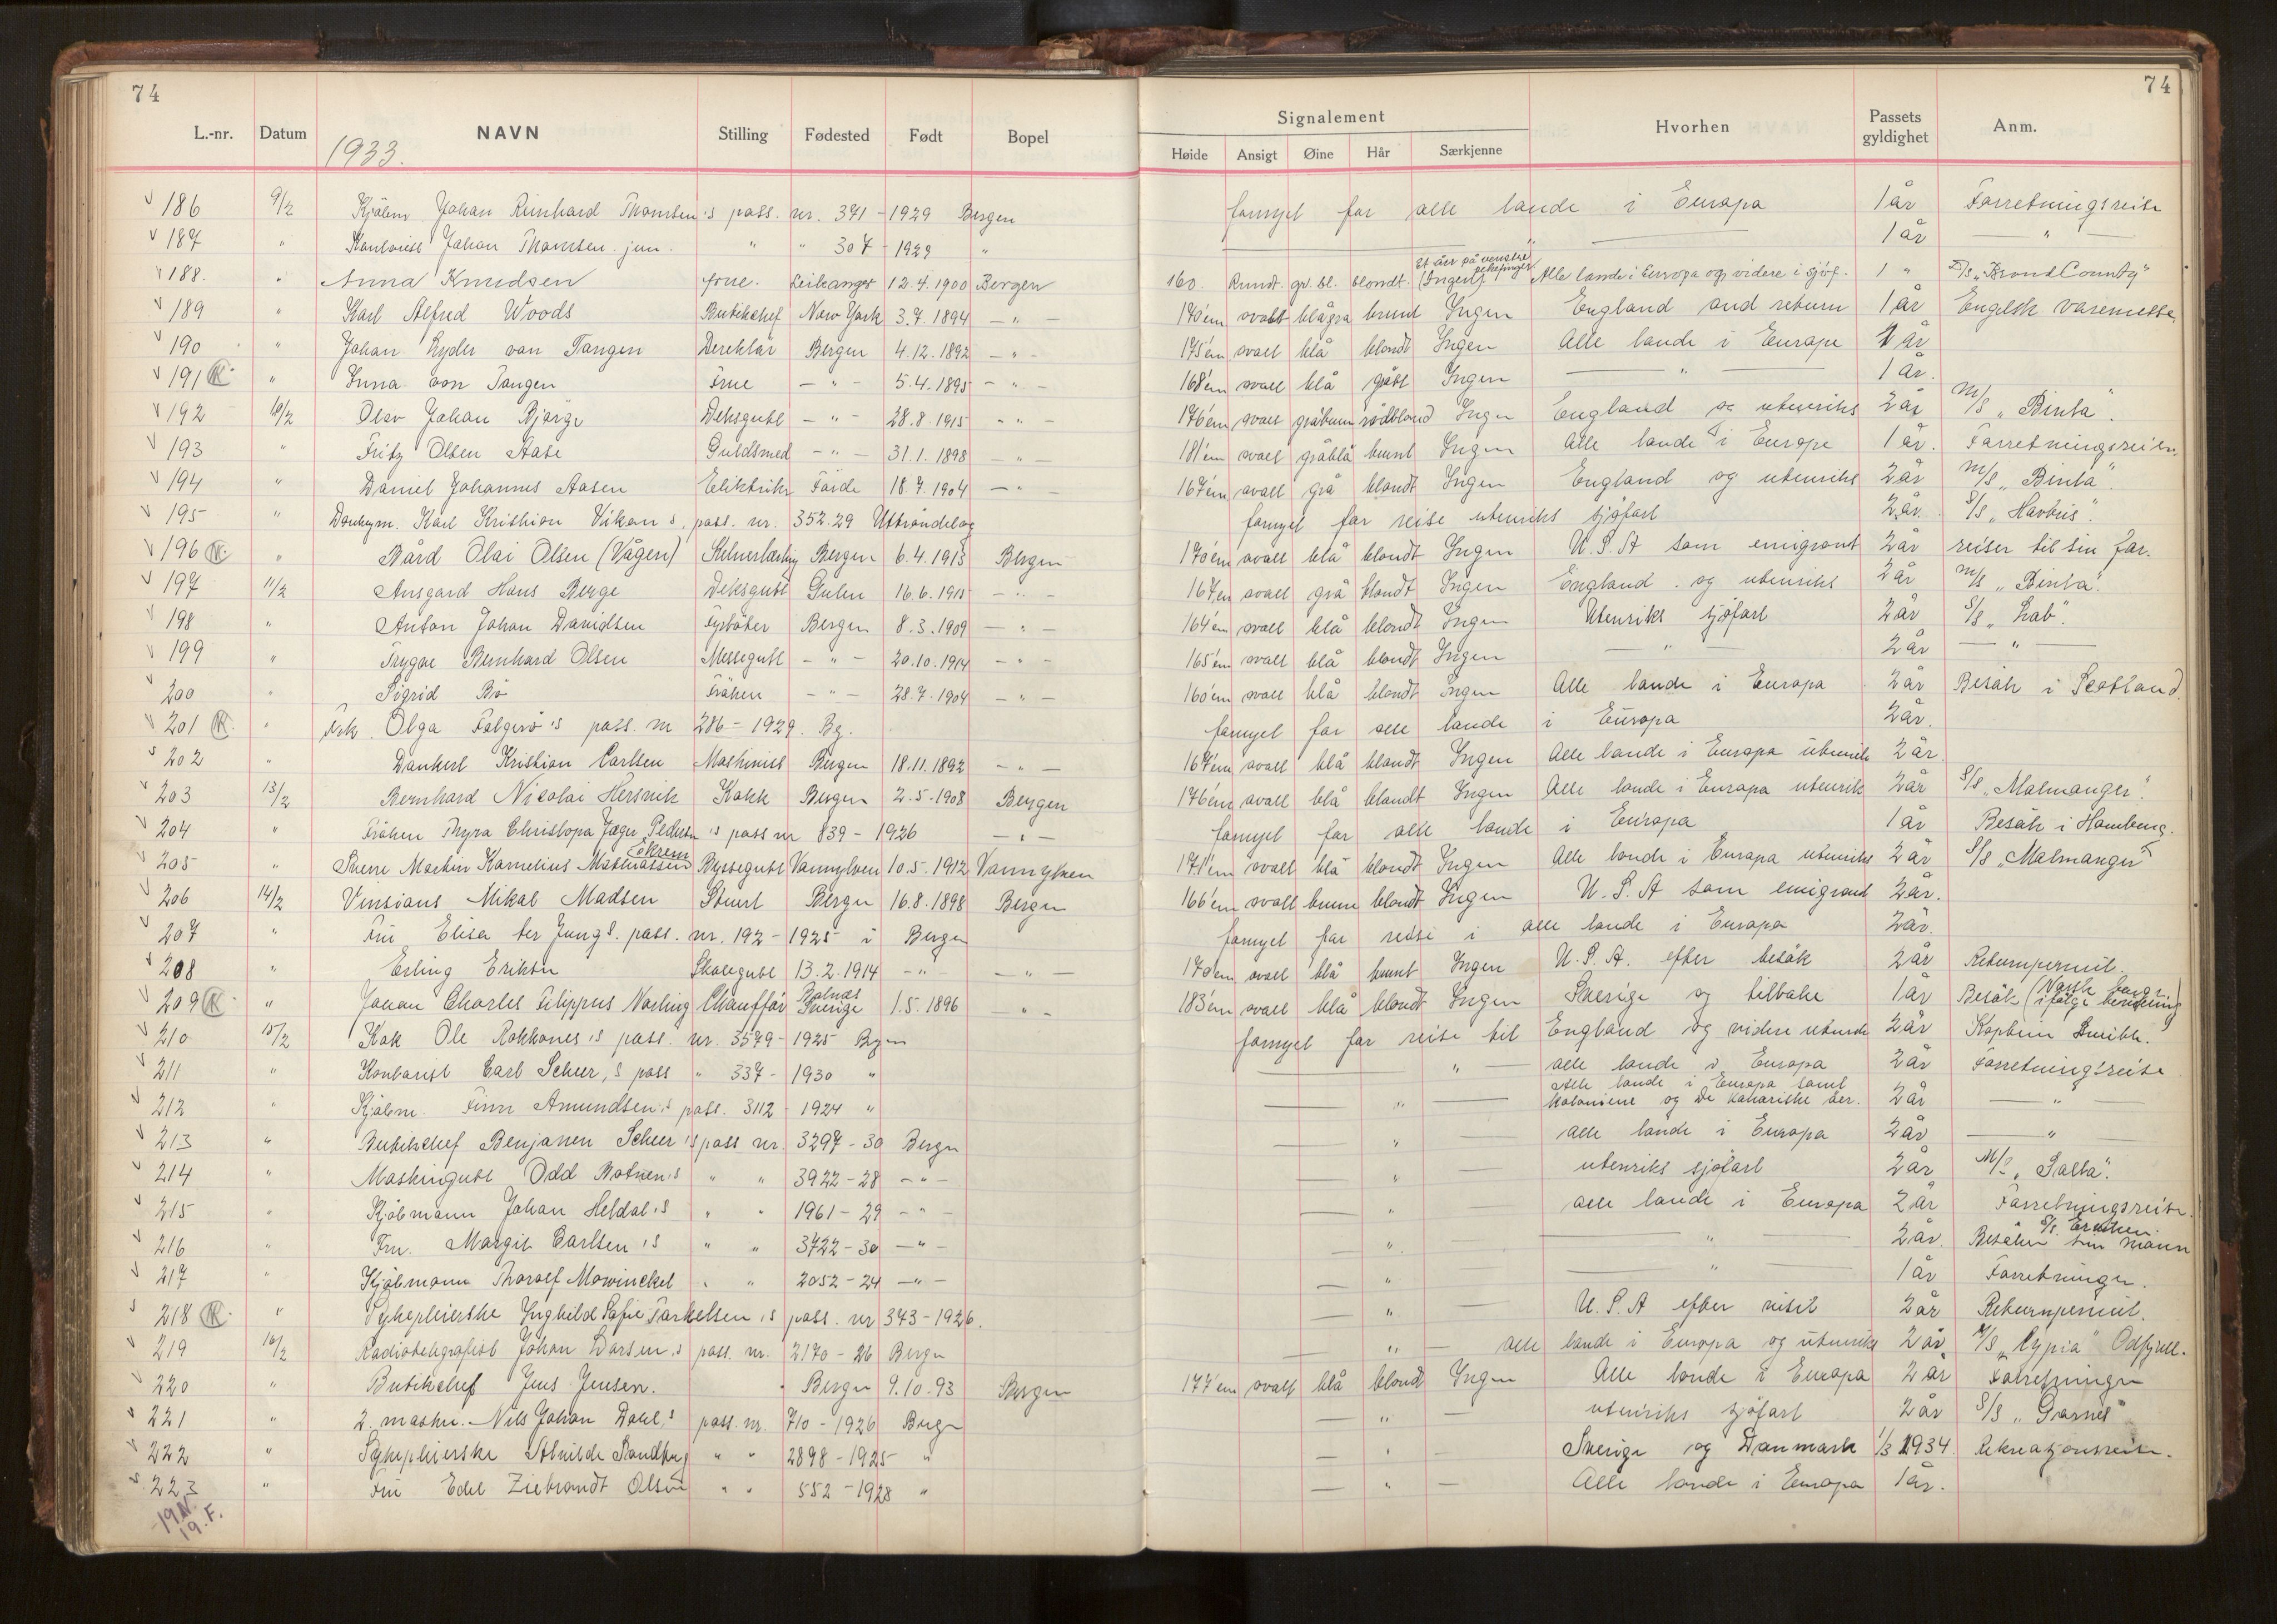 74
74
L.-nr. Datum NAVN Stilling Fødested Født Bopel
1933.
Signalement
Høide Ansigt Øine Hår Særkjenne Hvorhen Passets gyldighet Anm.
186 9/2 Kjöbm Johan Reinhard Thomsen's pass. nr. 371 - 1929 Bergen fornyet for alle lande i Europa 1 år Forretningsreise
187 " Kontorist Johan Thomsen jun. " " 307 - 1929 " 1 år — " —
188. " Anna Knudsen frue. Leikanger 12.4.1900 Bergen 160. Rundt. gr. bl. blondt. Et arr på venstre pekefinger (Ingen). Alle lande i Europa og videre i sjöf. 1 " D/s „Brond County"
189 " Karl Alfred Woods Butikchef New York 3.7.1894 — " — 170 cm ovalt blågrå brunt Ingen England and return 1 år Engelsk varemesse.
190 " Johan Lyder von Tangen Direktör Bergen 4.12.1892 — " — 175 cm ovalt blå blondt Ingen Alle lande i Europa 1 år
191 K " Inna von Tangen Frue — " — 5.4.1895 — " — 168 cm ovalt blå grått Ingen — " — 1 år.
192 10/2 Olav Johan Bjørge Deksgutt — " — 28.8.1915 — " — 176 cm ovalt gråbrun rödblond Ingen England og utenriks 2 år M/S „Binta".
193 " Fritz Olsen Aase Guldsmed — " — 31.1.1898 — " — 181 cm ovalt gråblå brunt Ingen Alle lande i Europa 1 år. Forretningsreise.
194 " Daniel Johannes Aasen Eliktriker Förde 18.7.1904 — " — 167 cm ovalt grå blondt Ingen England og utenriks 2 år M/S „Binta".
195 " Donkeym. Karl Kristian Vikan's, pass. nr. 352.29 Uttröndelag fornyet for reise utenriks sjöfart 2 år S/S „Havbris".
196 K " Bård Olai Olsen (Vågen) Kelnerlærling Bergen 6.4.1913 Bergen 170 cm ovalt blå blondt Ingen U.S.A som emigrant 2 år reiser til sin far.
197 11/2 Ansgard Hans Berge Deksgutt Gulen 16.6.1915 — " — 167 cm ovalt grå blondt Ingen England og utenriks 2 år M/S „Binta".
198 " Anton Johan Davidsen Fyrböter Bergen 8.3.1909 — " — 164 cm ovalt blå blondt Ingen Utenriks sjöfart 2 år S/S „Lab".
199 " Trygve Bernhard Olsen Messegutt — " — 20.10.1914 — " — 165 cm ovalt blå blondt Ingen — " — 2 år — " —
200 " Sigrid Bö Fröken — " — 28.7.1904 — " — 160 cm ovalt blå blondt Ingen Alle lande i Europa 2 år Besök i Scotland
201 K " Frk. Olga Folgerö's pass. nr 286 - 1929. Bg. fornyet for alle lande i Europa 2 år.
202 " Dankert Kristian Carlsen Maskinist Bergen 18.11.1892 — " — 167 cm ovalt blå blondt Ingen Alle lande i Europa utenriks 2 år.
203 13/2 Bernhard Nicolai Hersvik Kokk Bergen 2.5.1908 Bergen 176 cm ovalt blå blondt Ingen Alle lande i Europa utenrik 2 år S/S „Malmanger".
204 " Fröken Thyra Christopa Jæger Pedersen's pass nr 839 - 1926 — " — fornyet for alle lande i Europa 1 år Besök i Hamburg.
205 " Sverre Martin Kornelius Mathiassen Ekrem Byssegutt Vannylven 10.5.1912 Vannylven 171 cm ovalt blå blondt Ingen Alle lande i Europa utenriks 2 år S/S „Malmanger"
206 14/2 Vinsians Mikal Madsen Stuert Bergen 16.8.1898 Bergen 166 cm ovalt brune blondt Ingen U.S.A som emigrant 2 år.
207 " Fru Elisa ter Jung's. pass. nr. 192 - 1925 i Bergen fornyet for reise i alle lande i Europa 2 år.
208 " Erling Eriksen Skolegutt 13.2.1914 — " — — " — 170 cm ovalt blå brunt Ingen U.S.A. efter besök 2 år Returnpermit.
209 K " Johan Charles Filippus Norling Chaufför Bolnäs Sverige 1.5.1896 — " — 183 cm ovalt blå blondt Ingen Sverige og tilbake 1 år Besök (Norsk borger ifölge bevidning)
210 15/2 Kok Ole Rokkones's pass. nr. 3579 - 1925 Bgen fornyet for reise til England og videre utenriks 2 år Kaptein Smith.
211 " Kontorist Carl Scheer,s pass " 337 - 1930 " — " — alle lande i Europa 2 år Forretningsreise
212 " Kjöbm. Finn Amundsen's pass. 3112 - 1924 " — " — Alle lande i Europa samt koloniene og De kanariske öer. 2 år — " —
213 " Butikchef Benjamen Scheer's pass nr. 3297 - 30 Bergen — " — alle lande i Europa 2 år — " —
214 " Maskingutt Odd Botnen's " " 3922 - 28 — " — — " — utenriks sjöfart 2 år M/S „Salta".
215 " Kjöbmann Johan Heldal's " " 1961 - 29 — " — — " — alle lande i Europa 2 år Forretningsreise.
216 " Fru. Margit Carlsen's " " 3722 - 30 — " — — " — — " — 2 år. Besöker sin mann S/S
217 " Kjöbmann Thorolf Mowinckel " " 2052 - 24 — " — — " — — " — 1 år Forretninger.
218 K " Sykepleierske Inghild Sofie Torkelsen's pass. nr 343 - 1926. — " — U.S.A efter visit 2 år Returnpermit.
219 16/2 Radiotelegrafist Johan Larsen's pass. nr. 2170 - 26 Bergen — " — alle lande i Europa og utenriks 2 år M/S „Cypria" Odfjell.
220 " Butikchef Jens Jensen. Bergen 9.10.93 Bergen 177 cm ovalt blå blond Ingen Alle lande i Europa 2 år Forretninger
221 " 2. maskn. Nils Johan Dahl's pass. nr. 710 - 1926 Bergen — " — utenriks sjöfart 2 år S/S „Garnes"
222 " Sykepleierske Sandberg " " 2898 - 1925 " — " — Sverige og Danmark 1/3 1934 Rekreasjonsreise.
223 " Fru Edel Ziebrandt Olsen " " 552 - 1928 " — " — Alle lande i Europa 1 år.
19 N.
19. F.